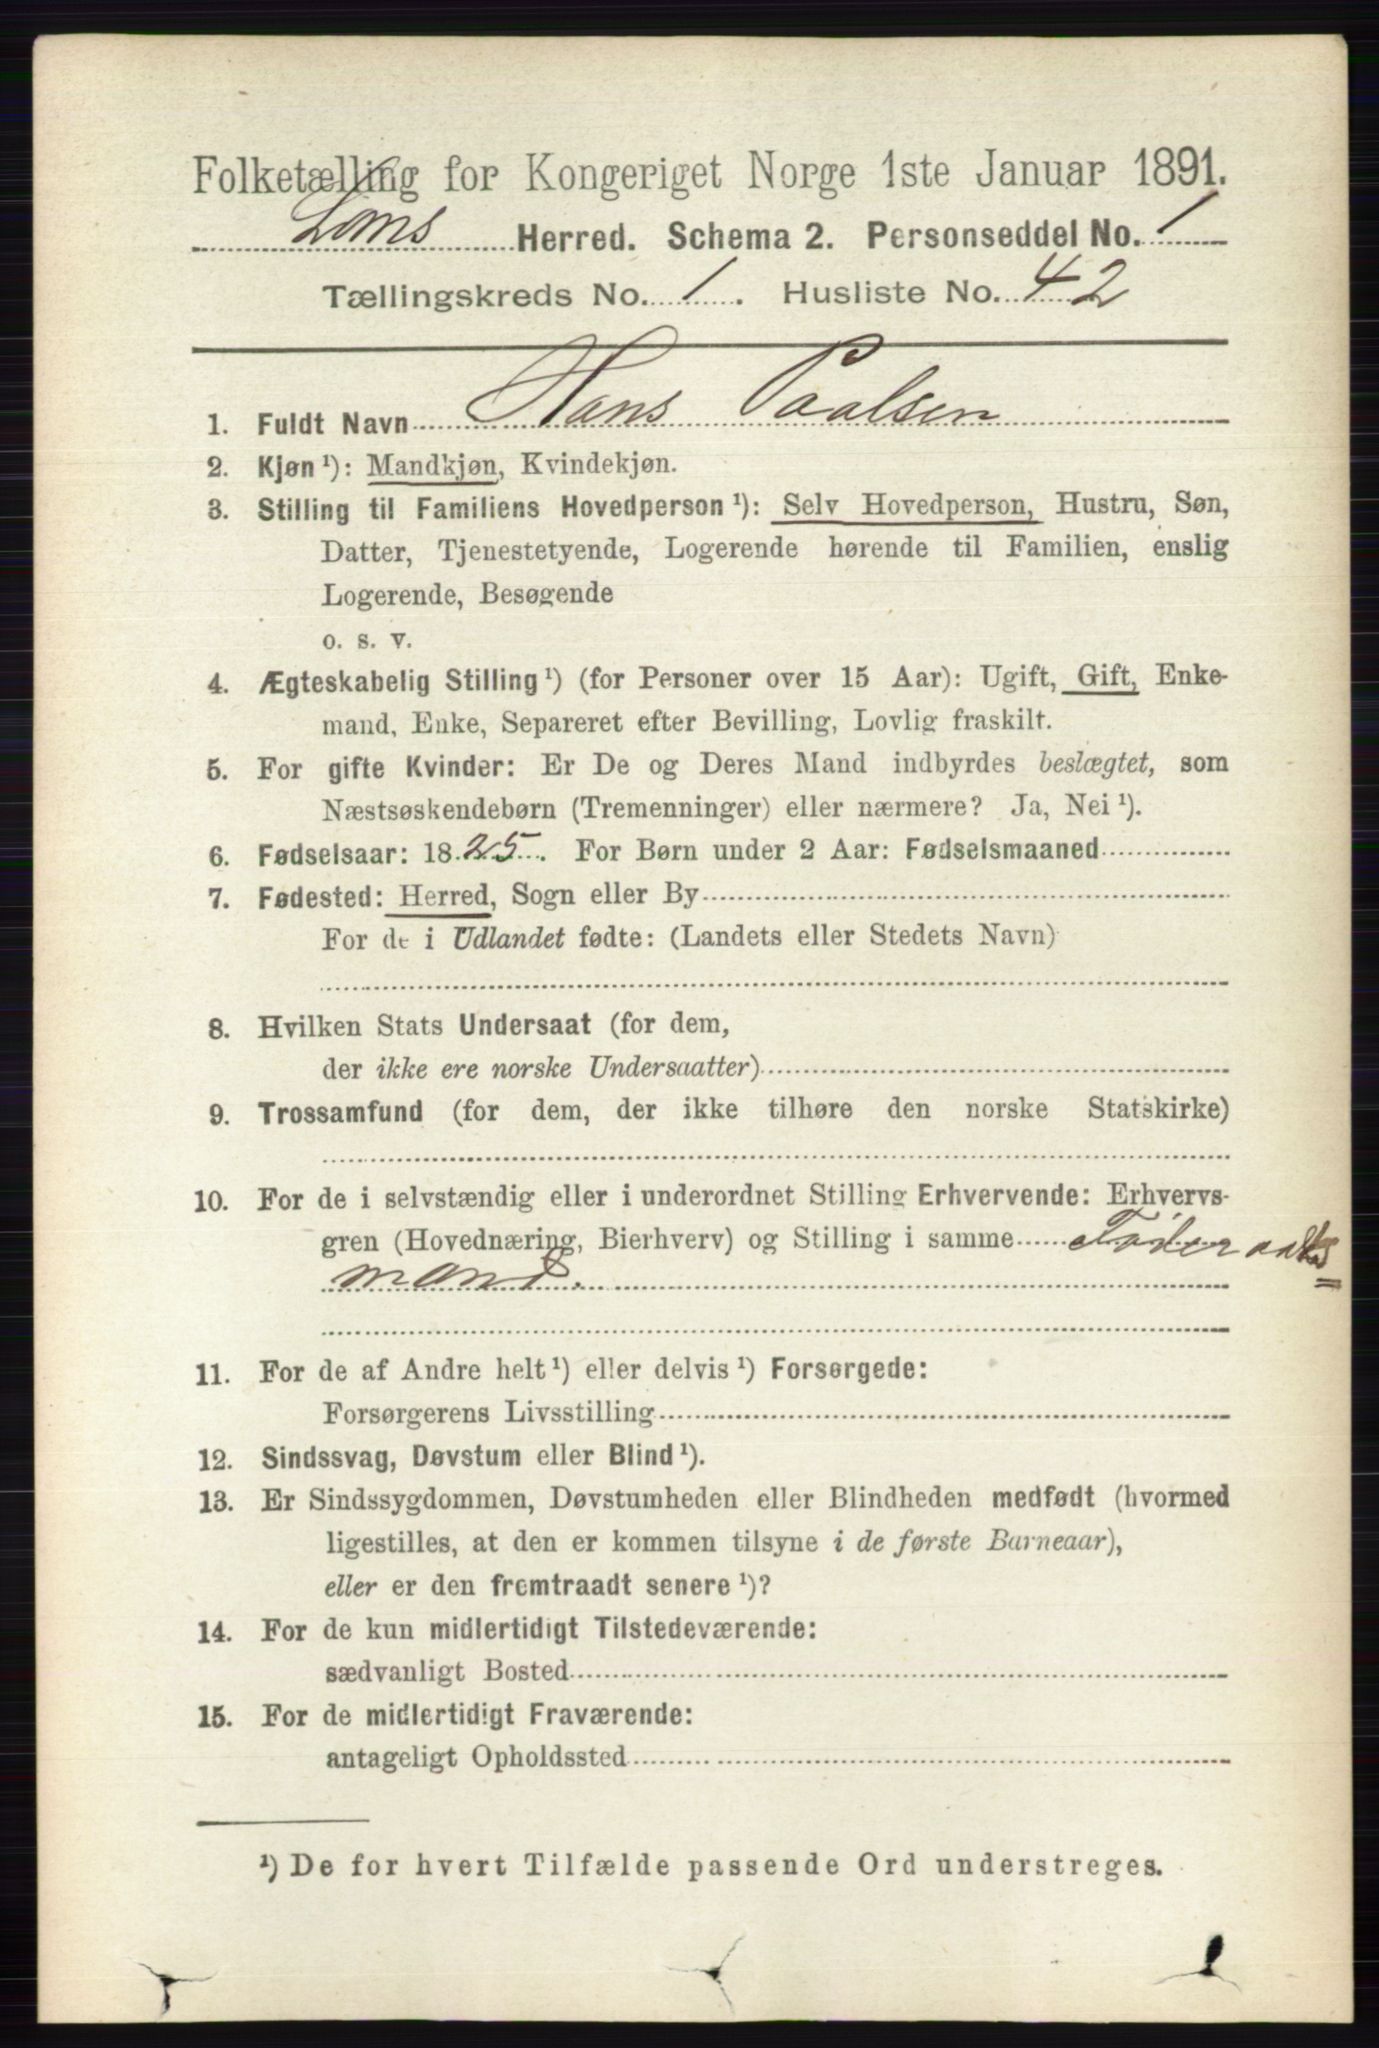 Folketælling for Kongeriget Norge 1ste Januar 1891.
Loms Herred. Schema 2. Personseddel No. 1
Tællingskreds No. 1. Husliste No. 42
1. Fuldt Navn Hans Paalsen
2. Kjøn ¹): Mandkjøn, Kvindekjøn.
3. Stilling til Familiens Hovedperson ¹): Selv Hovedperson, Hustru, Søn,
Datter, Tjenestetyende, Logerende hørende til Familien, enslig
Logerende, Besøgende
o. s. v.
4. Ægteskabelig Stilling ¹) (for Personer over 15 Aar): Ugift, Gift, Enke-
mand, Enke, Separeret efter Bevilling, Lovlig fraskilt.
5. For gifte Kvinder: Er De og Deres Mand indbyrdes beslægtet, som
Næstsøskendebørn (Tremenninger) eller nærmere? Ja, Nei ¹).
6. Fødselsaar: 1825. For Børn under 2 Aar: Fødselsmaaned
7. Fødested: Herred, Sogn eller By
For de i Udlandet fødte: (Landets eller Stedets Navn)
8. Hvilken Stats Undersaat (for dem,
der ikke ere norske Undersaatter)
9. Trossamfund (for dem, der ikke tilhøre den norske Statskirke)
10. For de i selvstændig eller i underordnet Stilling Erhvervende: Erhvervs-
gren (Hovednæring, Bierhverv) og Stilling i samme Føderaads
mand.
11. For de af Andre helt ¹) eller delvis ¹) Forsørgede:
Forsørgerens Livsstilling
12. Sindssvag, Døvstum eller Blind ¹).
13. Er Sindssygdommen, Døvstumheden eller Blindheden medfødt (hvormed
ligestilles, at den er kommen tilsyne i de første Barneaar),
eller er den fremtraadt senere ¹)?
14. For de kun midlertidigt Tilstedeværende:
sædvanligt Bosted
15. For de midlertidigt Fraværende:
antageligt Opholdssted
¹) De for hvert Tilfælde passende Ord understreges.